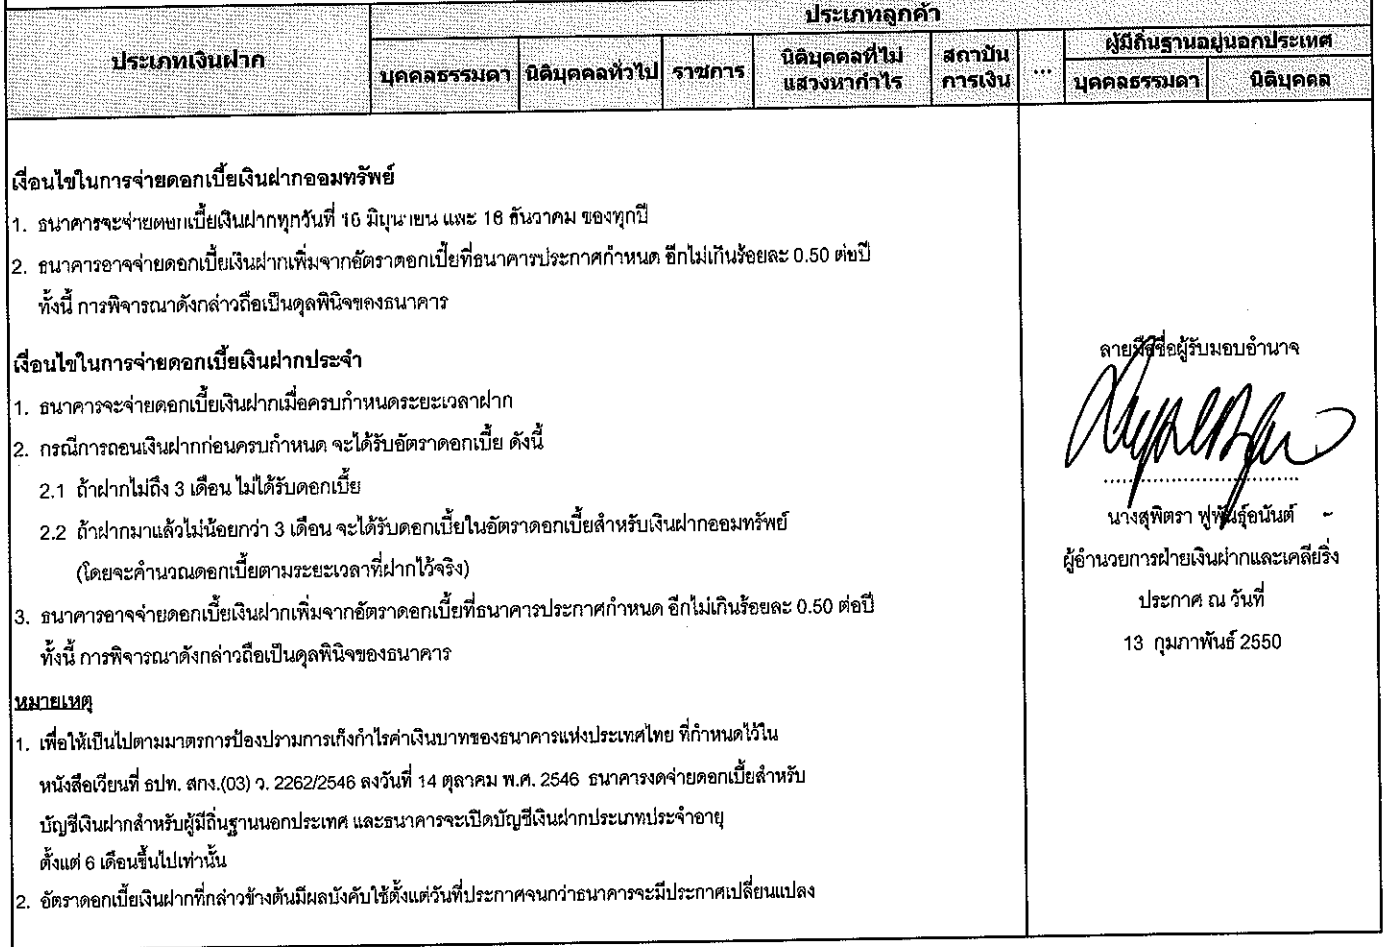 ประเภทเงินฝาก
ประเภทลูกค้า
บุคคลธรรมดา
นิติบุคคลทั่วไป
ราชการ
นิติบุคคลที่ไม่
แสวงหากำไร
สถาบัน
การเงิน
...
ผู้มีถิ่นฐานอยู่นอกประเทศ
บุคคลธรรมดา
นิติบุคคล
เงื่อนไขในการจ่ายดอกเบี้ยเงินฝากออมทรัพย์
1. ธนาคารจะจ่ายดอกเบี้ยเงินฝากทุกวันที่ 16 มิถุนายน และ 16 ธันวาคม ของทุกปี
2. ธนาคารอาจจ่ายดอกเบี้ยเงินฝากเพิ่มจากอัตราดอกเบี้ยที่ธนาคารประกาศกำหนด อีกไม่เกินร้อยละ 0.50 ต่อปี
ทั้งนี้ การพิจารณาดังกล่าวถือเป็นดุลพินิจของธนาคาร
เงื่อนไขในการจ่ายดอกเบี้ยเงินฝากประจำ
1. ธนาคารจะจ่ายดอกเบี้ยเงินฝากเมื่อครบกำหนดระยะเวลาฝาก
2. กรณีการถอนเงินฝากก่อนครบกำหนด จะได้รับอัตราดอกเบี้ย ดังนี้
2.1 ถ้าฝากไม่ถึง 3 เดือน ไม่ได้รับดอกเบี้ย
2.2 ถ้าฝากมาแล้วไม่น้อยกว่า 3 เดือน จะได้รับดอกเบี้ยในอัตราดอกเบี้ยสำหรับเงินฝากออมทรัพย์
(โดยจะคำนวณดอกเบี้ยตามระยะเวลาที่ฝากไว้จริง)
3. ธนาคารอาจจ่ายดอกเบี้ยเงินฝากเพิ่มจากอัตราดอกเบี้ยที่ธนาคารประกาศกำหนด อีกไม่เกินร้อยละ 0.50 ต่อปี
ทั้งนี้ การพิจารณาดังกล่าวถือเป็นดุลพินิจของธนาคาร
หมายเหตุ
1. เพื่อให้เป็นไปตามมาตรการป้องปรามการเก็งกำไรค่าเงินบาทของธนาคารแห่งประเทศไทย ที่กำหนดไว้ใน
หนังสือเวียนที่ ธปท. สกง.(03) ว. 2262/2546 ลงวันที่ 14 ตุลาคม พ.ศ. 2546 ธนาคารงดจ่ายดอกเบี้ยสำหรับ
บัญชีเงินฝากสำหรับผู้มีถิ่นฐานนอกประเทศ และธนาคารจะเปิดบัญชีเงินฝากประเภทประจำอายุ
ตั้งแต่ 6 เดือนขึ้นไปเท่านั้น
2. อัตราดอกเบี้ยเงินฝากที่กล่าวข้างต้นมีผลบังคับใช้ตั้งแต่วันที่ประกาศจนกว่าธนาคารจะมีประกาศเปลี่ยนแปลง
ลายมือชื่อผู้รับมอบอำนาจ
นางสุพิตรา ฟูพันธุ์อนันต์
ผู้อำนวยการฝ่ายเงินฝากและเคลียริ่ง
ประกาศ ณ วันที่
13 กุมภาพันธ์ 2550